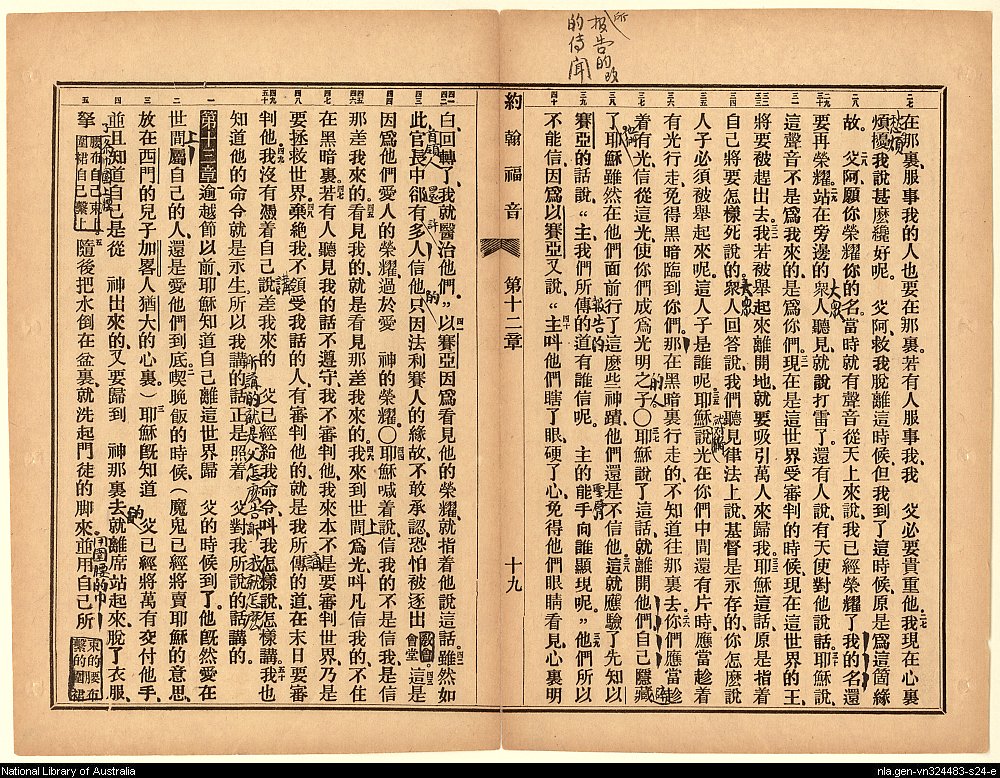 在那裏、服事我的人也要在那裏、若有人服事我、我 父必要貴重他、我現在心裏
煩擾、我說甚麽纔好呢。 父阿、救我脫離這時候、但我到了這時候、原是爲這箇緣
故。 父阿、願你榮耀你的名。當時就有聲音從天上來說、我已經榮耀了我的名、還
要再榮耀。站在旁邊的衆人聽見、就說打雷了、還有人說、有天使對他說話。耶穌說、
這聲音不是爲我來的、是爲你們。現在是這世界受審判的時候、現在這世界的王、
將要被趕出去。我若被舉起來離開地、就要吸引萬人來歸我。耶穌這話原是指着
自己將要怎樣死說的。衆人回答說、我們聽見律法上說、基督是永存的、你怎麽說
人子必須被舉起來呢。這人子是誰呢。耶穌說、光在你們中間還有片時、應當趁着
有光行走、免得黑暗臨到你們。那在黑暗裏行走的、不知道往那裏去。你們應當趁
着有光、信從這光、使你們成爲光明之子〇耶穌說了這話、就離開他們自己隱藏
了。耶穌雖然在他們面前行了這麽些神蹟、他們還是不信他。這就應驗了先知以
賽亞的話說、“主、我們所傳的道有誰信呢。 主的能手向誰顯現呢。”他們所以
不能信、因爲以賽亞又說、“主叫他們瞎了眼、硬了心、免得他們眼睛看見、心裏明
約翰福音 第十二章 十九
白、回轉了、我就醫治他們。”以賽亞因爲看見他的榮耀、就指着他說這話。雖然如
此、官長中卻有多人信他、只因法利賽人的緣故、不敢承認、恐怕被逐出會堂、這是
因爲他們愛人的榮耀、過於愛 神的榮耀。〇耶穌喊着說、信我的不是信我、是信
那差我來的。看見我的、就是看見那差我來的。我來到世間爲光、叫凡信我的、不住
在黑暗裏。若有人聽見我的話不遵守、我不審判他、我來本不是要審判世界、乃是
要拯救世界。棄絕我、不領受我話的人、有審判他的、就是我所傳的道、在末日要審
判他。我沒有憑着自己說、差我來的 父已經給我命令、叫我怎樣說、怎樣講。我也
知道他的命令就是永生、所以我講的話、正是照着 父對我所說的話講的。
第十三章 逾越節以前、耶穌知道自己離這世界歸 父的時候到了、他旣然愛在
世間屬自己的人、還是愛他們到底。喫晚飯的時候、（魔鬼已經將賣耶穌的意思、
放在西門的兒子加畧人猶大的心裏）耶穌旣知道 父已經將萬有交付他手、
並且知道自己是從 神出來的、又要歸到 神那裏去、就離席站起來、脫了衣服、
拏 腰布自己束上 圍裙自己繫上 隨後把水倒在盆裏、就洗起門徒的脚來、並用自己所 束的腰布 繫的圍裙
所
报告的改
的传闻
愁煩
大衆
大衆
的人
報告的
聖臂
首領
還
許
的
上
講
講
所講的就是父怎麽告訴我就怎麽
上
的
用圍腰的巾
National Library of Australia
nla.gen-vn324483-s24-e